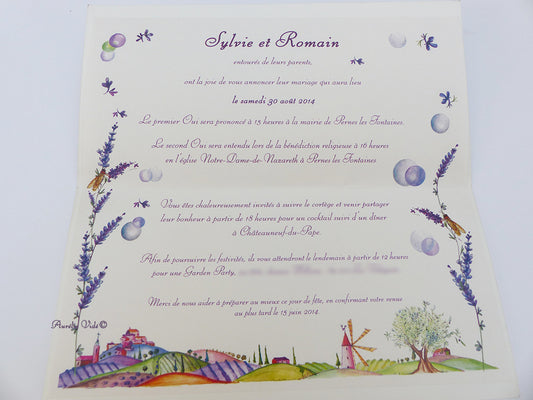 Sylvie et Romain
entourés de leurs parents,
ont la joie de vous annoncer leur mariage qui aura lieu
le samedi 30 août 2014
Le premier Oui sera prononcé à 15 heures à la mairie de Pernes les Fontaines.
Le second Oui sera entendu lors de la bénédiction religieuse à 16 heures
en l'église Notre-Dame-de-Nazareth à Pernes les Fontaines
Vous êtes chaleureusement invités à suivre le cortège et venir partager
leur bonheur à partir de 18 heures pour un cocktail suivi d'un dîner
à Châteauneuf-du-Pape.
Afin de poursuivre les festivités, ils vous attendront le lendemain à partir de 12 heures
pour une Garden Party,
Merci de nous aider à préparer au mieux ce jour de fête, en confirmant votre venue
au plus tard le 15 juin 2014.
Aurély Vidé©